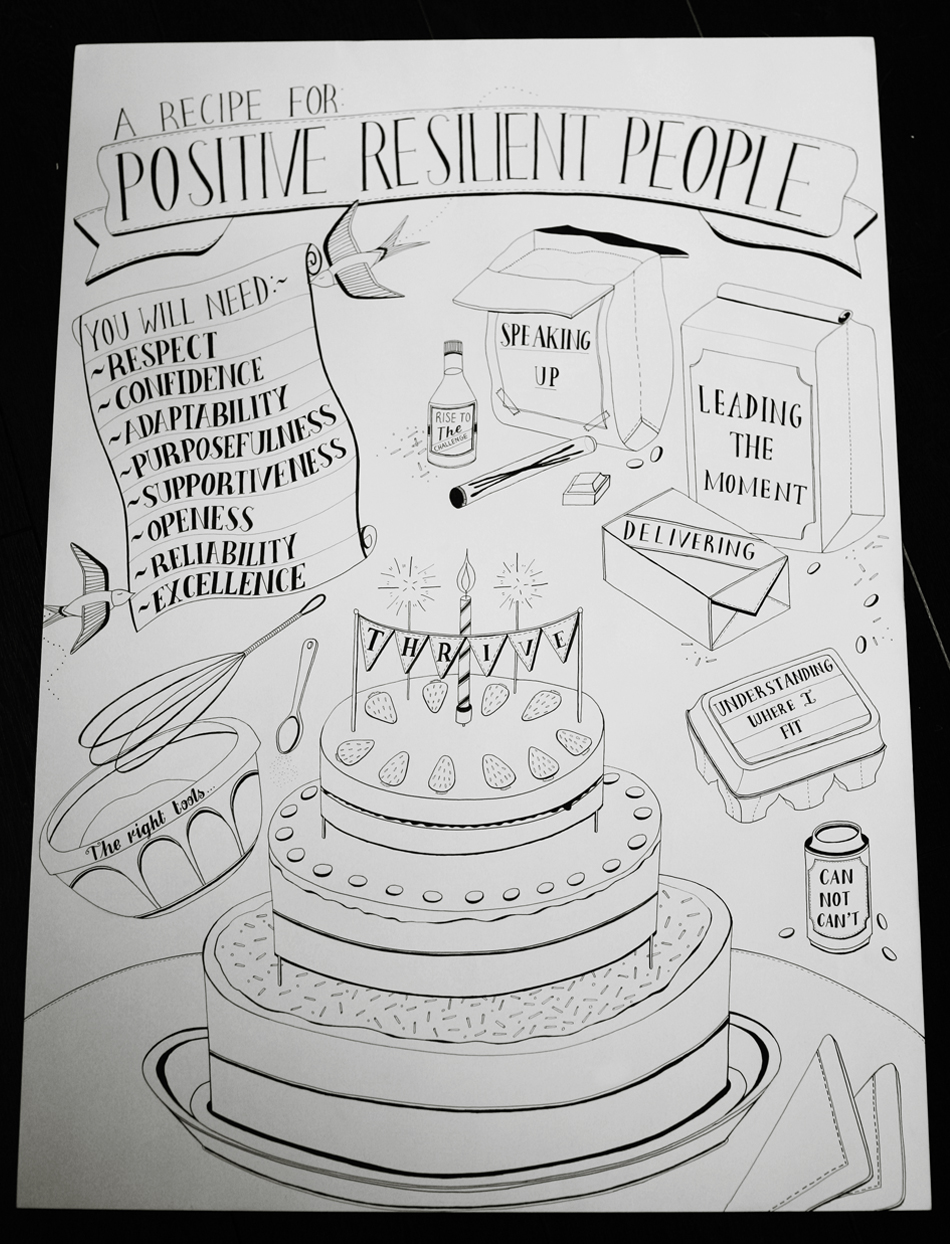 A RECIPE FOR
POSITIVE RESILIENT PEOPLE
YOU WILL NEED:~
~RESPECT
~CONFIDENCE
~ADAPTABILITY
~PURPOSEFULNESS
~SUPPORTIVENESS
~OPENESS
~RELIABILITY
~EXCELLENCE
SPEAKING
UP
RISE TO
The
CHALLENGE
LEADING
THE
MOMENT
DELIVERING
THRIVE
UNDERSTANDING
WHERE I
FIT
The right tools...
CAN
NOT
CAN'T